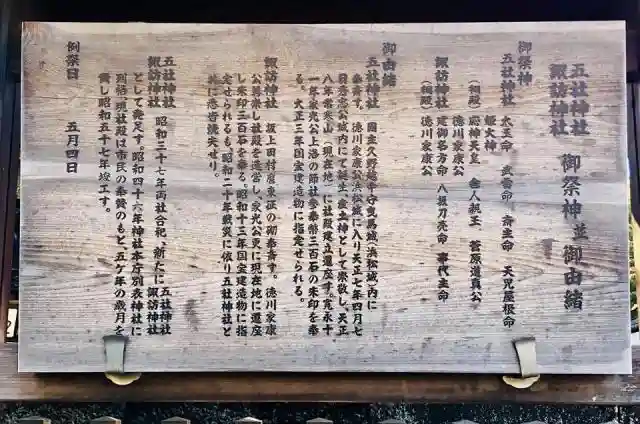 五社神社
諏訪神社 御祭神並御由緒
御祭神
五社神社 太玉命 武雷命 斉主命 天児屋根命
姫大神
(相殿) 応神天皇 舎人親王 菅原道真公
徳川家康公
諏訪神社 建御名方命 八坂刀売命 事代主命
(相殿) 徳川家康公
御由緒
五社神社 国主久野越中守曳馬城(浜松城)内に
奉斎す。徳川家康公浜松城に入り天正七年四月七
日秀忠公城内にて誕生、産土神として崇敬し、天正
八年常寒山(現在地)に社殿建立遷座す。寛永十
一年家光公上洛の節社参奉幣三百石の朱印を奉
る。大正三年国宝建造物に指定せられる。
諏訪神社 坂上田村麿東征の砌奉斎す。徳川家康
公尊崇し社殿を造営し、家光公更に現在地に遷座
し朱印三百石を奉る。昭和十三年国宝建造物に指
定せられるも、昭和二十年戦災に依り五社神社と
共に悉皆焼失せり。
五社神社
諏訪神社 昭和三十七年両社合祀、新たに 五社神社
諏訪神社
として発足す。昭和四十六年神社本庁別表神社に
列格。現社殿は市民の奉賛のもと、五ケ年の歳月を
費し昭和五十七年竣工す。
例祭日 五月四日